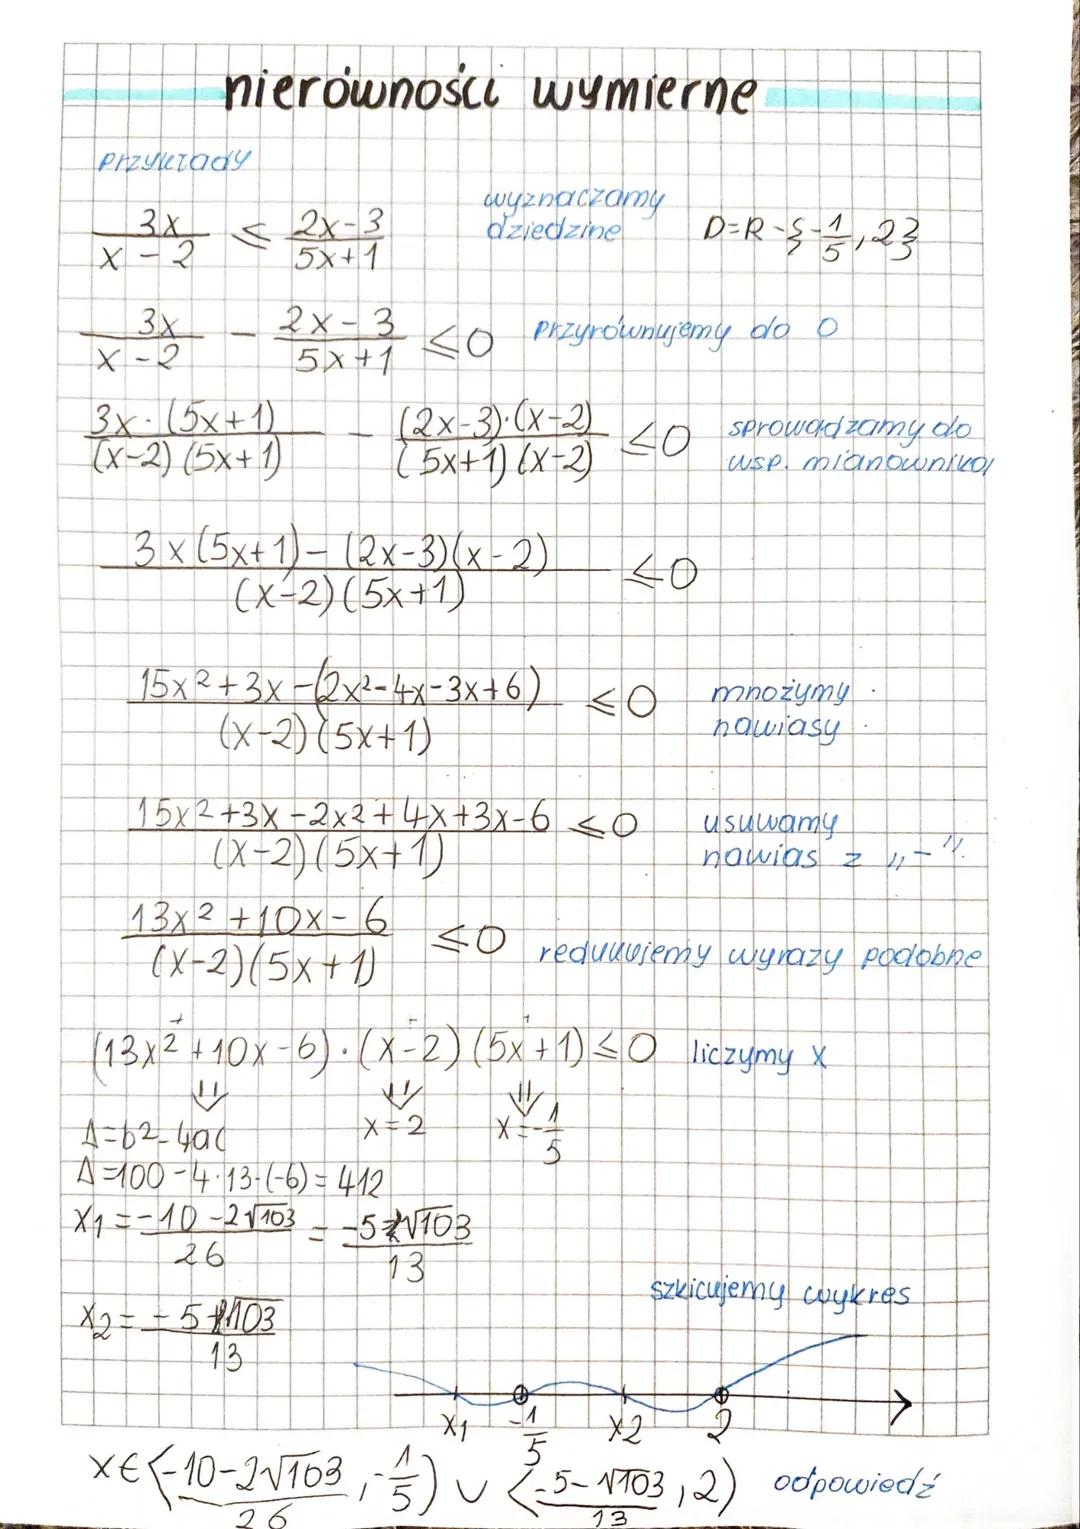 nierówności wymierne
przykłady
3x/(x-2) ≤ (2x-3)/(5x+1) wyznaczamy dziedzine D=R-{-1/5, 2}
3x/(x-2) - (2x-3)/(5x+1) ≤0 przyrównujemy do 0
3x·(5x+1)/((x-2)(5x+1)) - (2x-3)·(x-2)/((5x+1)(x-2)) ≤0 sprowadzamy do wsp. mianownika
(3x(5x+1)-(2x-3)(x-2))/((x-2)(5x+1)) ≤0
(15x²+3x-(2x²-4x-3x+6))/((x-2)(5x+1)) ≤0 mnożymy nawiasy
(15x²+3x-2x²+4x+3x-6)/((x-2)(5x+1)) ≤0 usuwamy nawias z „-".
(13x²+10x-6)/((x-2)(5x+1)) ≤0 redukujemy wyrazy podobne
(13x²+10x-6)·(x-2)(5x+1)≤0 liczymy x
Δ=b²-4ac x=2 x=-1/5
Δ=100-4·13·(-6)=412
x₁=(-10-2√103)/26 = (-5-√103)/13
szkicujemy wykres
x₂=(-5+√103)/13
x₁ -1/5 x₂ 2
x∈⟨(-10-2√103)/26, -1/5) ∪ ⟨(-5-√103)/13, 2) odpowiedź